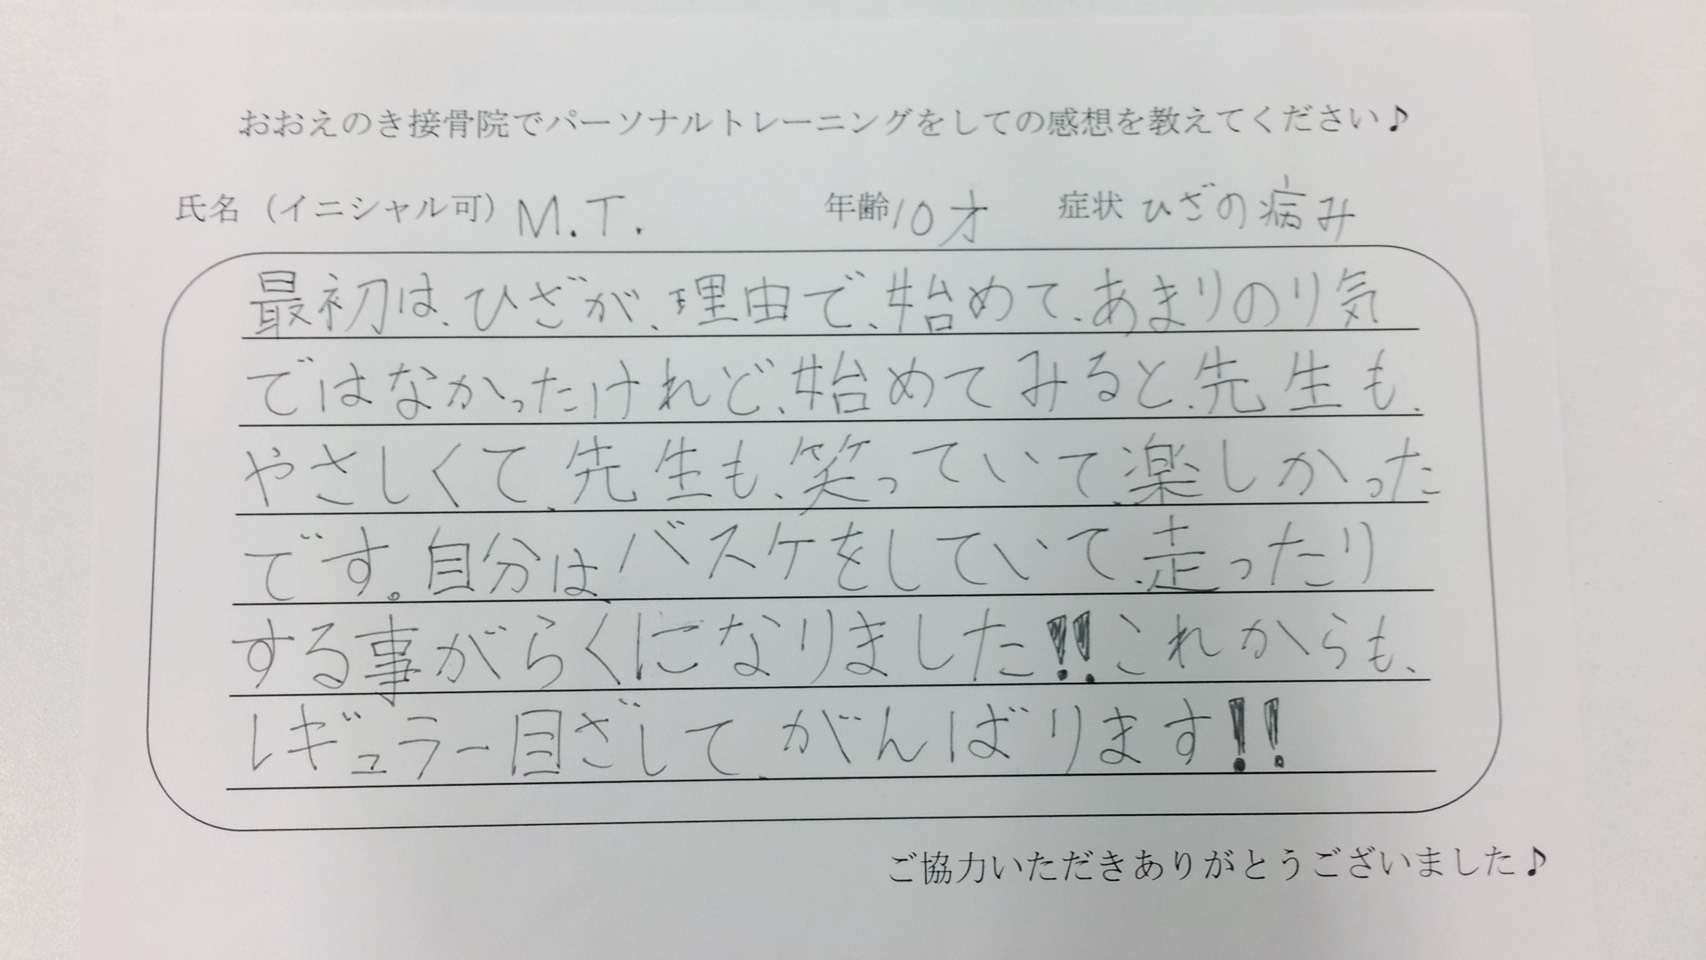 おおえのき接骨院でパーソナルトレーニングをしての感想を教えてください♪
氏名（イニシャル可） M.T. 年齢 10才 症状 ひざの病み
最初は、ひざが、理由で、始めて、あまりのり気
ではなかったけれど、始めてみると、先生も、
やさしくて、先生も、笑っていて、楽しかった
です。自分は、バスケをしていて、走ったり
する事がらくになりました!!これからも、
レギュラー目ざして、がんばります!!
ご協力いただきありがとうございました♪